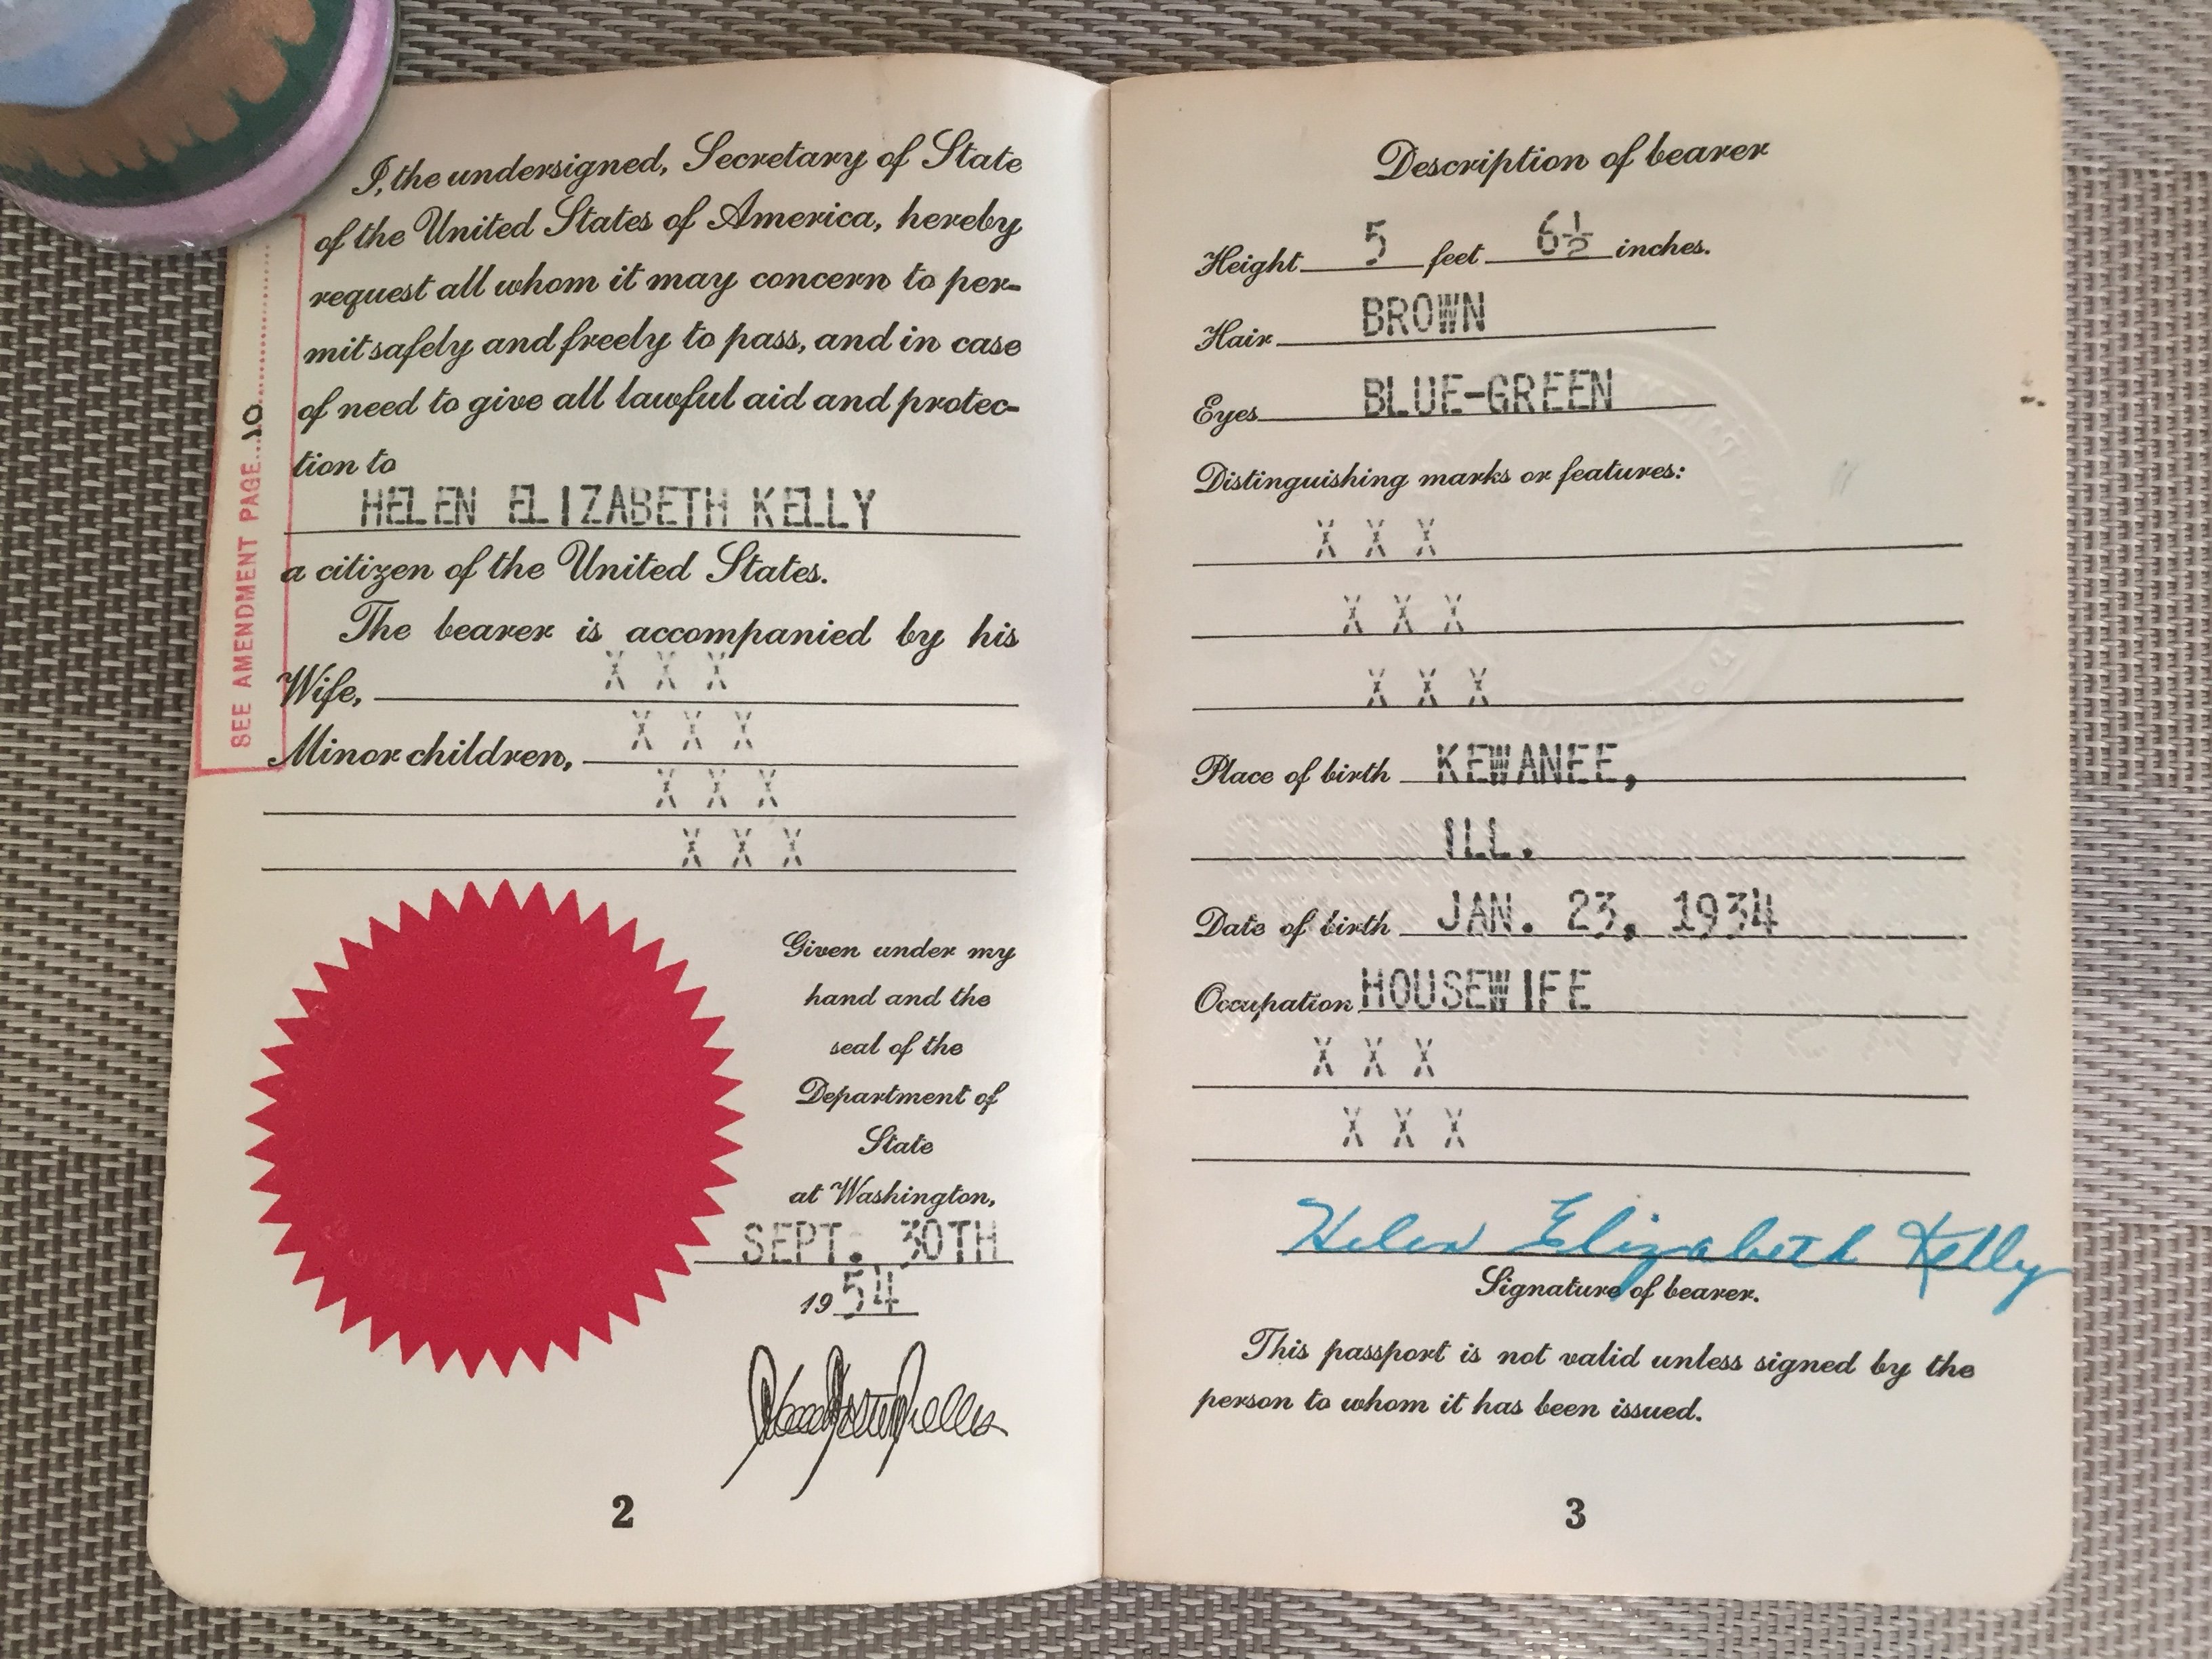 I, the undersigned, Secretary of State
of the United States of America, hereby
request all whom it may concern to per-
mit safely and freely to pass, and in case
of need to give all lawful aid and protec-
tion to
HELEN ELIZABETH KELLY
a citizen of the United States.
The bearer is accompanied by his
X X X
Wife,
X X X
Minor children,
X X X
X X X
SEE AMENDMENT PAGE...10
Given under my
hand and the
seal of the
Department of
State
at Washington,
SEPT. 30TH
1954
2
Description of bearer
Height 5 feet 6½ inches.
Hair BROWN
Eyes BLUE-GREEN
Distinguishing marks or features:
X X X
X X X
X X X
Place of birth KEWANEE,
ILL.
Date of birth JAN. 23, 1934
Occupation HOUSEWIFE
X X X
X X X
Helen Elizabeth Kelly
Signature of bearer.
This passport is not valid unless signed by the
person to whom it has been issued.
3